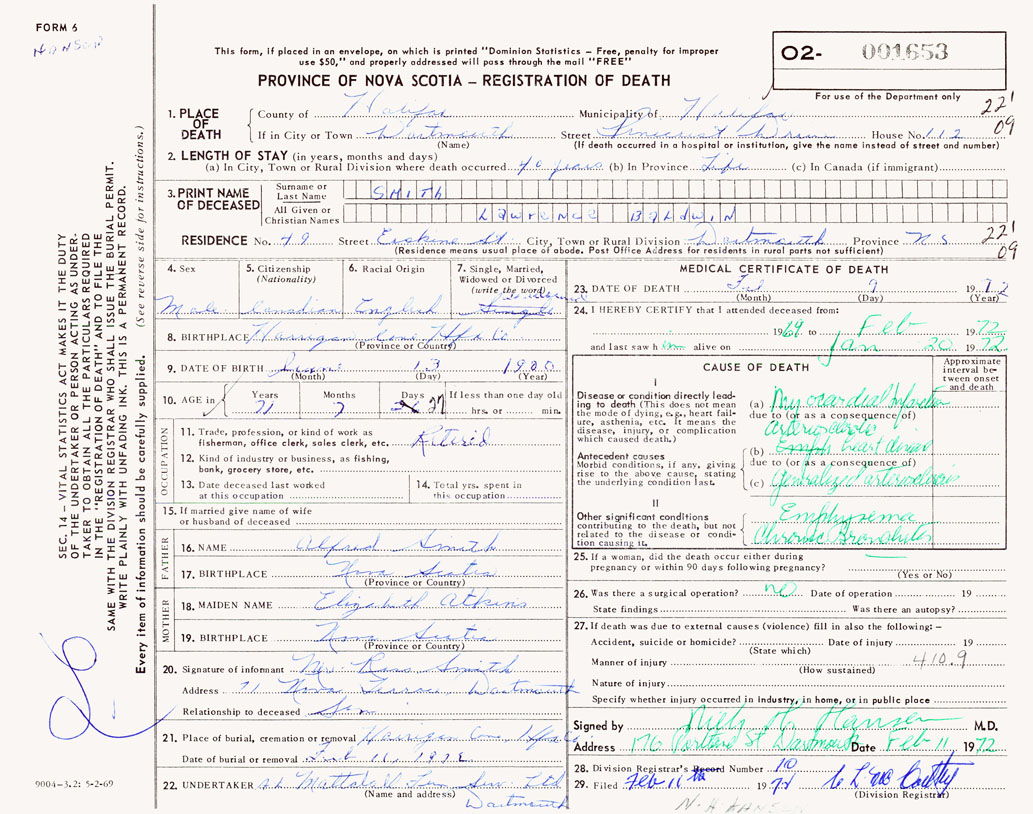 FORM 6
HANSEN
This form, if placed in an envelope, on which is printed "Dominion Statistics – Free, penalty for improper
use $50," and properly addressed will pass through the mail "FREE"
PROVINCE OF NOVA SCOTIA – REGISTRATION OF DEATH
O2- 001653
For use of the Department only
221
09
1. PLACE OF DEATH
County of Halifax Municipality of Halifax
If in City or Town Dartmouth Street Pinecrest Drive House No. 112
(Name) (If death occurred in a hospital or institution, give the name instead of street and number)
2. LENGTH OF STAY (in years, months and days)
(a) In City, Town or Rural Division where death occurred 40 years (b) In Province Life (c) In Canada (if immigrant)
3. PRINT NAME OF DECEASED
Surname or Last Name SMITH
All Given or Christian Names LAWRENCE BALDWIN
RESIDENCE No. 49 Street Erskine St City, Town or Rural Division Dartmouth Province N S
221
09
(Residence means usual place of abode. Post Office Address for residents in rural parts not sufficient)
4. Sex
Male
5. Citizenship (Nationality)
Canadian
6. Racial Origin
English
7. Single, Married, Widowed or Divorced (write the word)
Widowed
Single
8. BIRTHPLACE Harrigan Cove Hfx Co
(Province or Country)
9. DATE OF BIRTH 13 1900
(Month) (Day) (Year)
10. AGE in Years Months Days If less than one day
71 7 26 27 hrs. or min.
OCCUPATION
11. Trade, profession, or kind of work as fisherman, office clerk, sales clerk, etc. Retired
12. Kind of industry or business, as fishing, bank, grocery store, etc.
13. Date deceased last worked at this occupation
14. Total yrs. spent in this occupation
15. If married give name of wife or husband of deceased
FATHER
16. NAME Alfred Smith
17. BIRTHPLACE Nova Scotia
(Province or Country)
MOTHER
18. MAIDEN NAME Elizabeth Atkins
19. BIRTHPLACE Nova Scotia
(Province or Country)
20. Signature of informant Mr. Ross Smith
Address 71 Nova Terrace Dartmouth
Relationship to deceased Son
21. Place of burial, cremation or removal Harrigan Cove Hfx Co
Date of burial or removal Feb 11, 1972
22. UNDERTAKER Mattatall Ltd
(Name and address) Dartmouth
MEDICAL CERTIFICATE OF DEATH
23. DATE OF DEATH Feb 9 1972
(Month) (Day) (Year)
24. I HEREBY CERTIFY that I attended deceased from:
1969 to Feb 1972
and last saw h him alive on Jan 20 1972
CAUSE OF DEATH
Approximate interval between onset and death
I
Disease or condition directly leading to death (This does not mean the mode of dying, e.g., heart failure, asthenia, etc. It means the disease, injury, or complication which caused death.)
(a) Myocardial Infarction
due to (or as a consequence of)
Antecedent causes
Morbid conditions, if any, giving rise to the above cause, stating the underlying condition last.
(b) Emph heart disease
due to (or as a consequence of)
(c) Generalized arteriosclerosis
II
Other significant conditions contributing to the death, but not related to the disease or condition causing it.
Emphysema
Chronic Bronchitis
25. If a woman, did the death occur either during pregnancy or within 90 days following pregnancy?
(Yes or No)
26. Was there a surgical operation? no Date of operation 19
State findings Was there an autopsy?
27. If death was due to external causes (violence) fill in also the following: –
Accident, suicide or homicide? Date of injury 19
(State which)
Manner of injury 410.9
(How sustained)
Nature of injury
Specify whether injury occurred in industry, in home, or in public place
Signed by Niels H Hansen M.D.
Address 176 Portland St Dartmouth Date Feb 11 1972
28. Division Registrar's Record Number 10
29. Filed Feb 11th 1972
(Division Registrar)
N. H. HANSEN
SEC. 14 – VITAL STATISTICS ACT MAKES IT THE DUTY
OF THE UNDERTAKER OR PERSON ACTING AS UNDER-
TAKER TO OBTAIN ALL THE PARTICULARS REQUIRED
IN THE "REGISTRATION OF DEATH" AND TO FILE THE
SAME WITH THE DIVISION REGISTRAR WHO SHALL ISSUE THE BURIAL PERMIT.
WRITE PLAINLY WITH UNFADING INK. THIS IS A PERMANENT RECORD.
Every item of information should be carefully supplied. (See reverse side for instructions.)
9004–3.2: 5-2-69